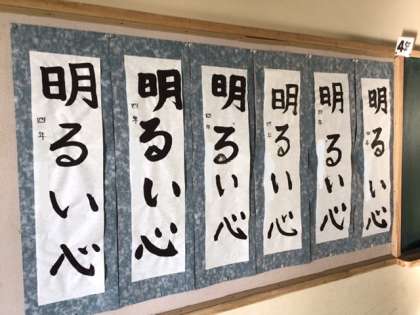 明るい心
四年
明るい心
四年
明るい心
四年
明るい心
四年
明るい心
四年
明るい心
四年